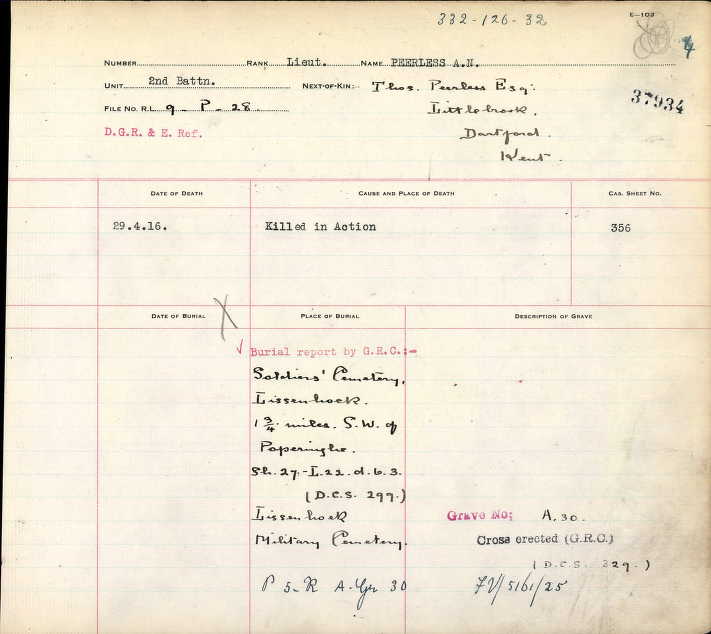 332-126-32
E—103
NUMBER RANK Lieut. NAME PEERLESS A.N.
UNIT 2nd Battn. NEXT-OF-KIN:- Thos. Peerless Esq:
37934
FILE NO. R.L. 9 - P - 28 Littlebrook,
D.G.R. & E. Ref. Dartford.
Kent.
DATE OF DEATH CAUSE AND PLACE OF DEATH CAS. SHEET NO.
29.4.16. Killed in Action 356
DATE OF BURIAL PLACE OF BURIAL DESCRIPTION OF GRAVE
Burial report by G.R.C.:-
Soldiers' Cemetery,
Lissenhoek.
1 3/4 miles. S.W. of
Poperinghe.
Sh. 27.-L.22.d.6.3.
(D.C.S. 299.)
Lissenhoek Grave No; A.30.
Military Cemetery. Cross erected (G.R.C.)
(D.C.S. 329.)
P 5-R A. Gr 30